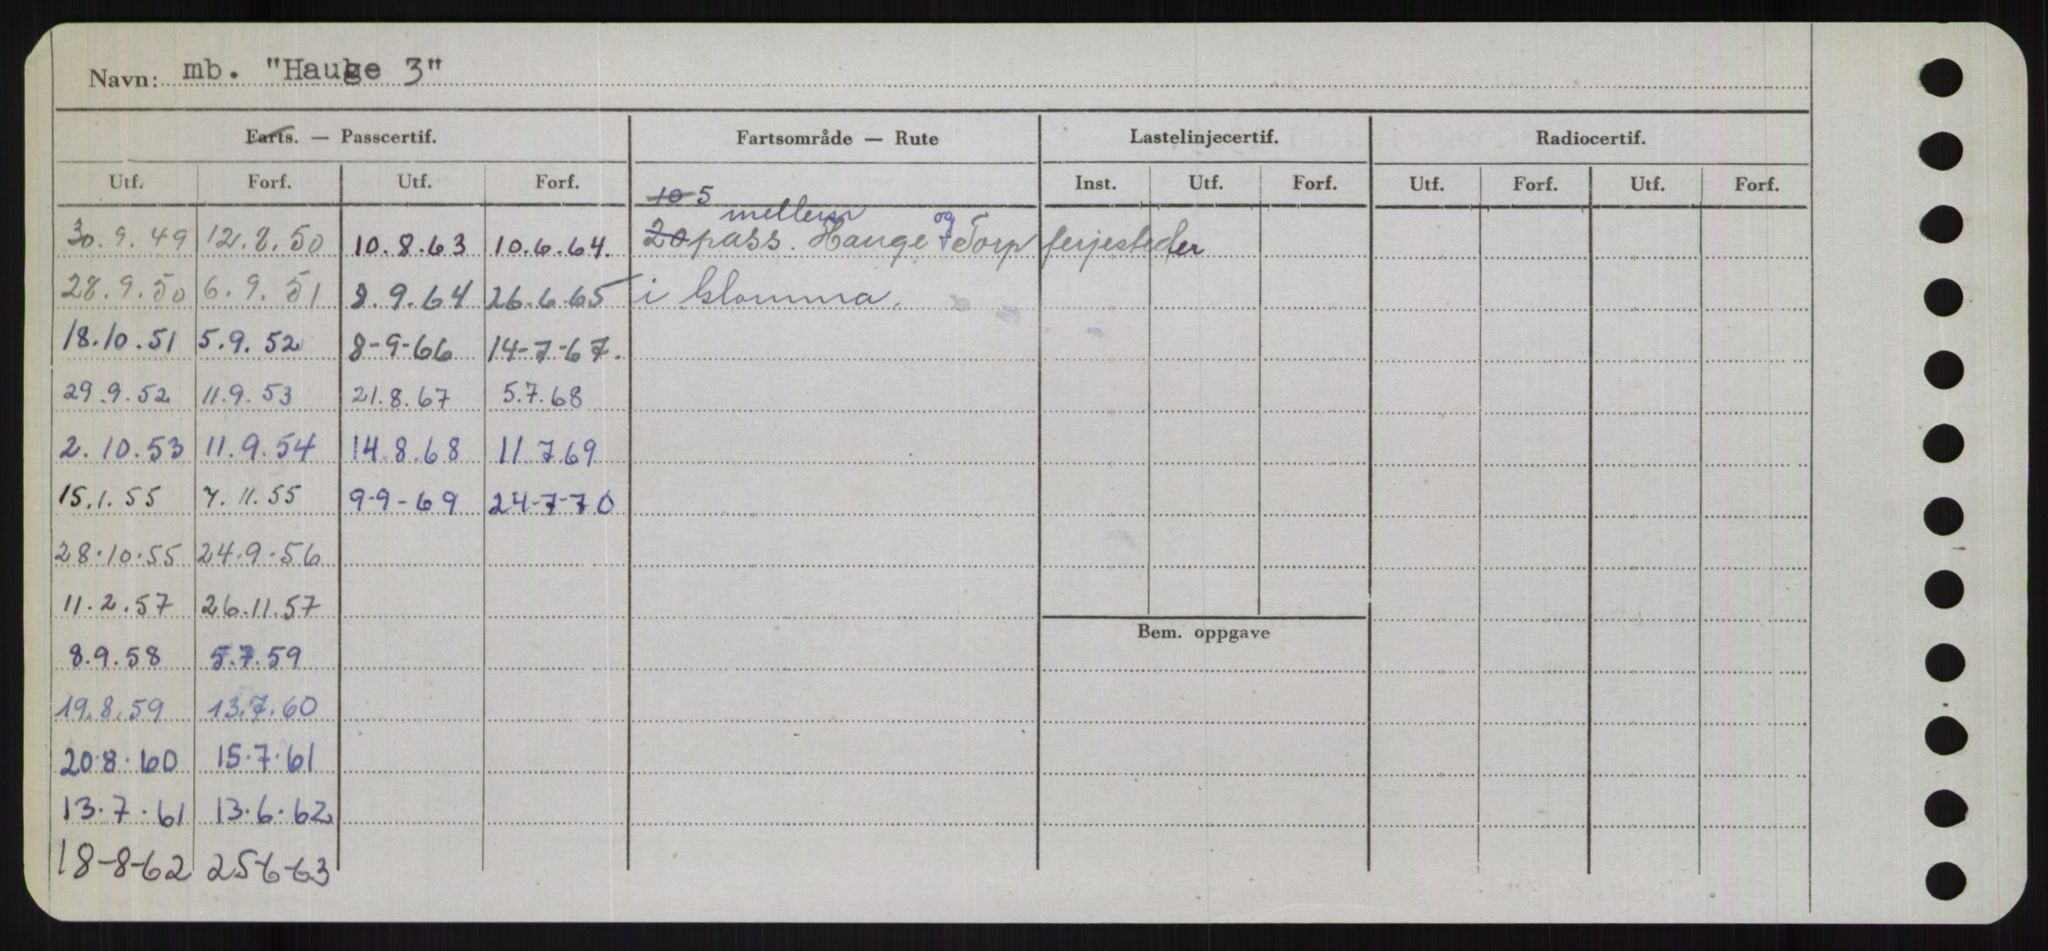 Navn: mb. "Hauge 3"
Farts. — Passcertif. Fartsområde — Rute Lastelinjecertif. Radiocertif.
Utf. Forf. Utf. Forf. Inst. Utf. Forf. Utf. Forf. Utf. Forf.
10 5
mellem og
30.9.49 12.8.50 10.8.63 10.6.64. 20 pass. Hauge Torp ferjesteder
28.9.50 6.9.51 8.9.64 26.6.65 i Glomma.
18.10.51 5.9.52 8-9-66 14-7-67.
29.9.52 11.9.53 21.8.67 5.7.68
2.10.53 11.9.54 14.8.68 11.7.69
15.1.55 7.11.55 9-9-69 24-7-70
28.10.55 24.9.56
11.2.57 26.11.57
Bem. oppgave
8.9.58 5.7.59
19.8.59 13.7.60
20.8.60 15.7.61
13.7.61 13.6.62
18-8-62 25-6-63